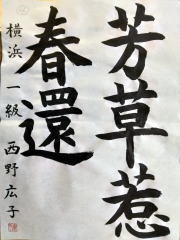 芳草惹
春還
横浜 一級 西野広子